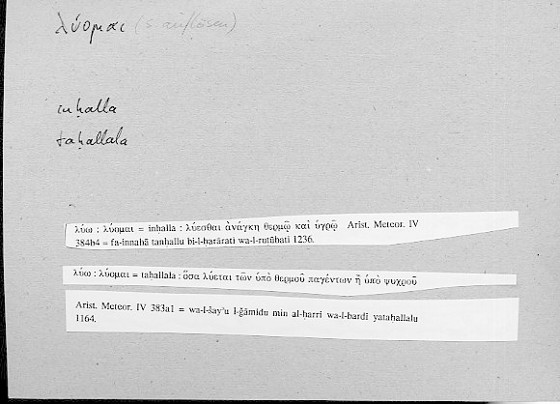 λύομαι (s. auflösen)
inḥalla
taḥallala
λύω : λύομαι = inḥalla : λύεσθαι ἀνάγκη θερμῷ καὶ ὑγρῷ Arist. Meteor. IV
384b4 = fa-innahā tanḥallu bi-l-ḥarārati wa-l-ruṭūbati 1236.
λύω : λύομαι = taḥallala : ὅσα λύεται τῶν ὑπὸ θερμοῦ παγέντων ἢ ὑπὸ ψυχροῦ
Arist. Meteor. IV 383a1 = wa-l-šay'u l-ǧāmidu min al-ḥarri wa-l-bardi yataḥallalu
1164.